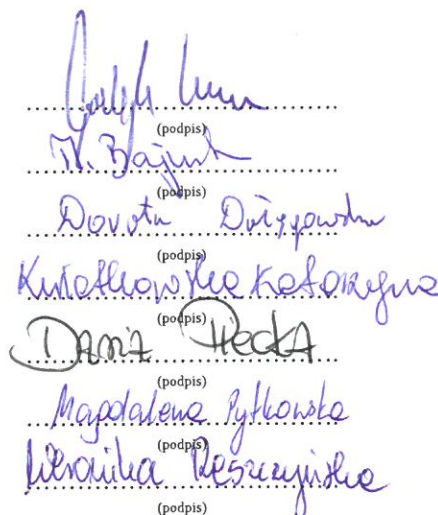 (podpis)
(podpis)
Dorota
(podpis)
Kwiatkowska Katarzyna
(podpis)
Daria Piecka
(podpis)
Magdalena Pytkowska
(podpis)
Weronika Reszczyńska
(podpis)